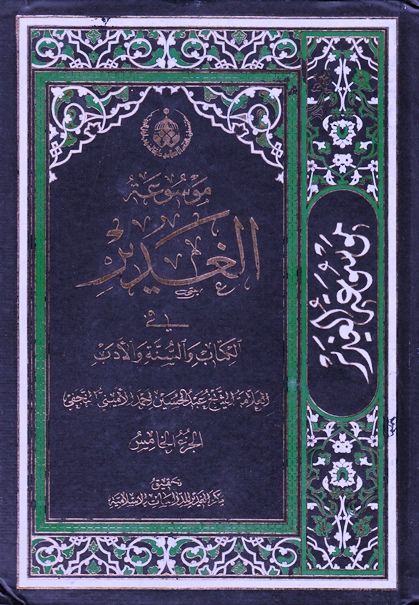 موسوعة
الغدير
في
الكتاب والسنة والأدب
للعلامة الشيخ عبد الحسين أحمد الأميني النجفي
الجزء الخامس
تحقيق
مركز الغدير للدراسات الإسلامية
موسوعة الغدير